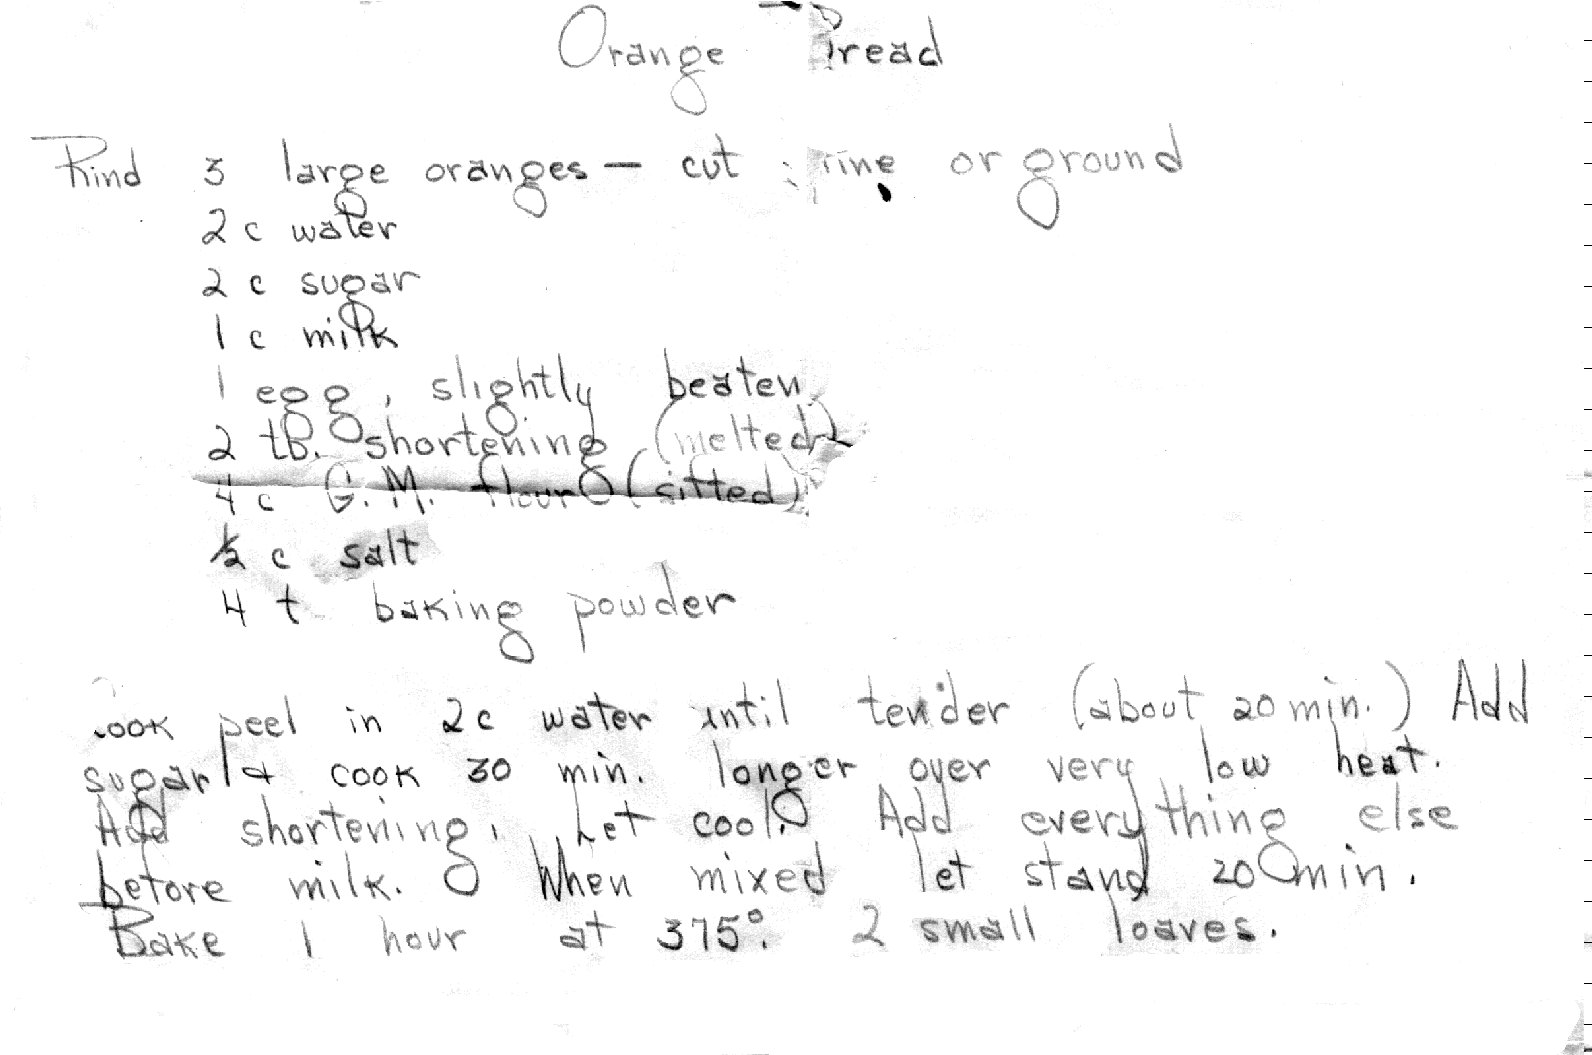 Orange Bread
Rind 3 large oranges — cut fine or ground
2 c water
2 c sugar
1 c milk
1 egg, slightly beaten
2 tb. shortening (melted)
4 c G.M. flour (sifted)
1/2 c salt
4 t baking powder
Cook peel in 2 c water until tender (about 20 min.) Add
sugar & cook 30 min. longer over very low heat.
Add shortening. Let cool. Add everything else
before milk. When mixed let stand 20 min.
Bake 1 hour at 375°. 2 small loaves.